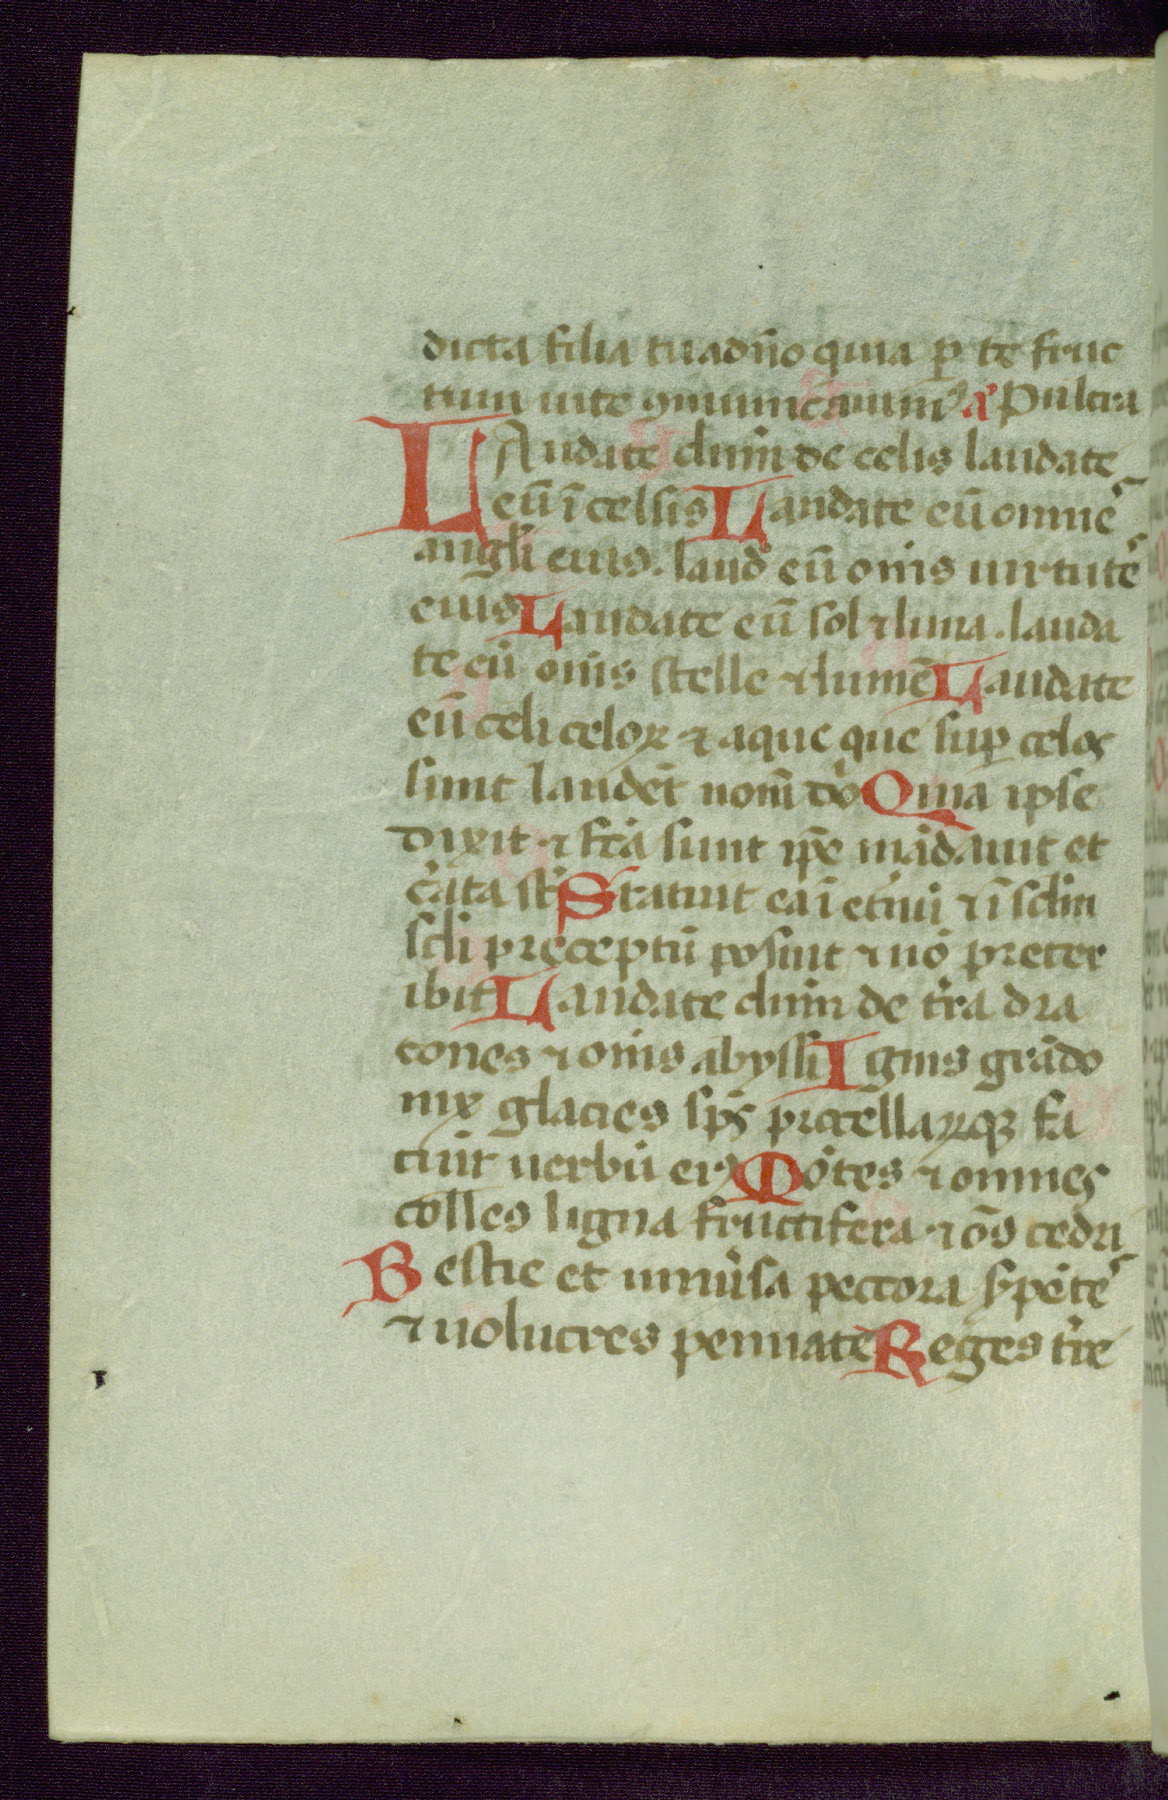 dicta filia tu a dn̄o quia ꝑ te fruc
tum uite ꝯmunicauimꝰ a᷎ Pulcra
LAudate dnm̄ de celis laudate
eū ī celsis Laudate eū omnes
angl̄i eius. laud̄ eū om̄s uirtutes
eius Laudate eū sol ⁊ luna. lauda
te eū om̄s stelle ⁊ lumē Laudate
eū celi celoꝝ ⁊ aque que suꝑ celos
sunt laudēt nom̄ do᷎ Quia ipse
dixit ⁊ fc̄a sunt ip̄e mādauit et
c᷎ata st̄ Statuit ea ī et᷎nū ⁊ ī sclm̄
scl̄i preceptū posuit ⁊ nō preter
ibit Laudate dnm̄ de t᷎ra dra
cones ⁊ om̄s abyssi Ignis grādo
nix glacies sp̄s procellaꝝ qꝫ fa
ciūt uerbū eiꝰ Mōtes ⁊ omnes
colles ligna fructifera ⁊ ōs cedri
Bestie et uniu᷎sa peccora s᷎pētes
⁊ uolucres pennate Reges t᷎re